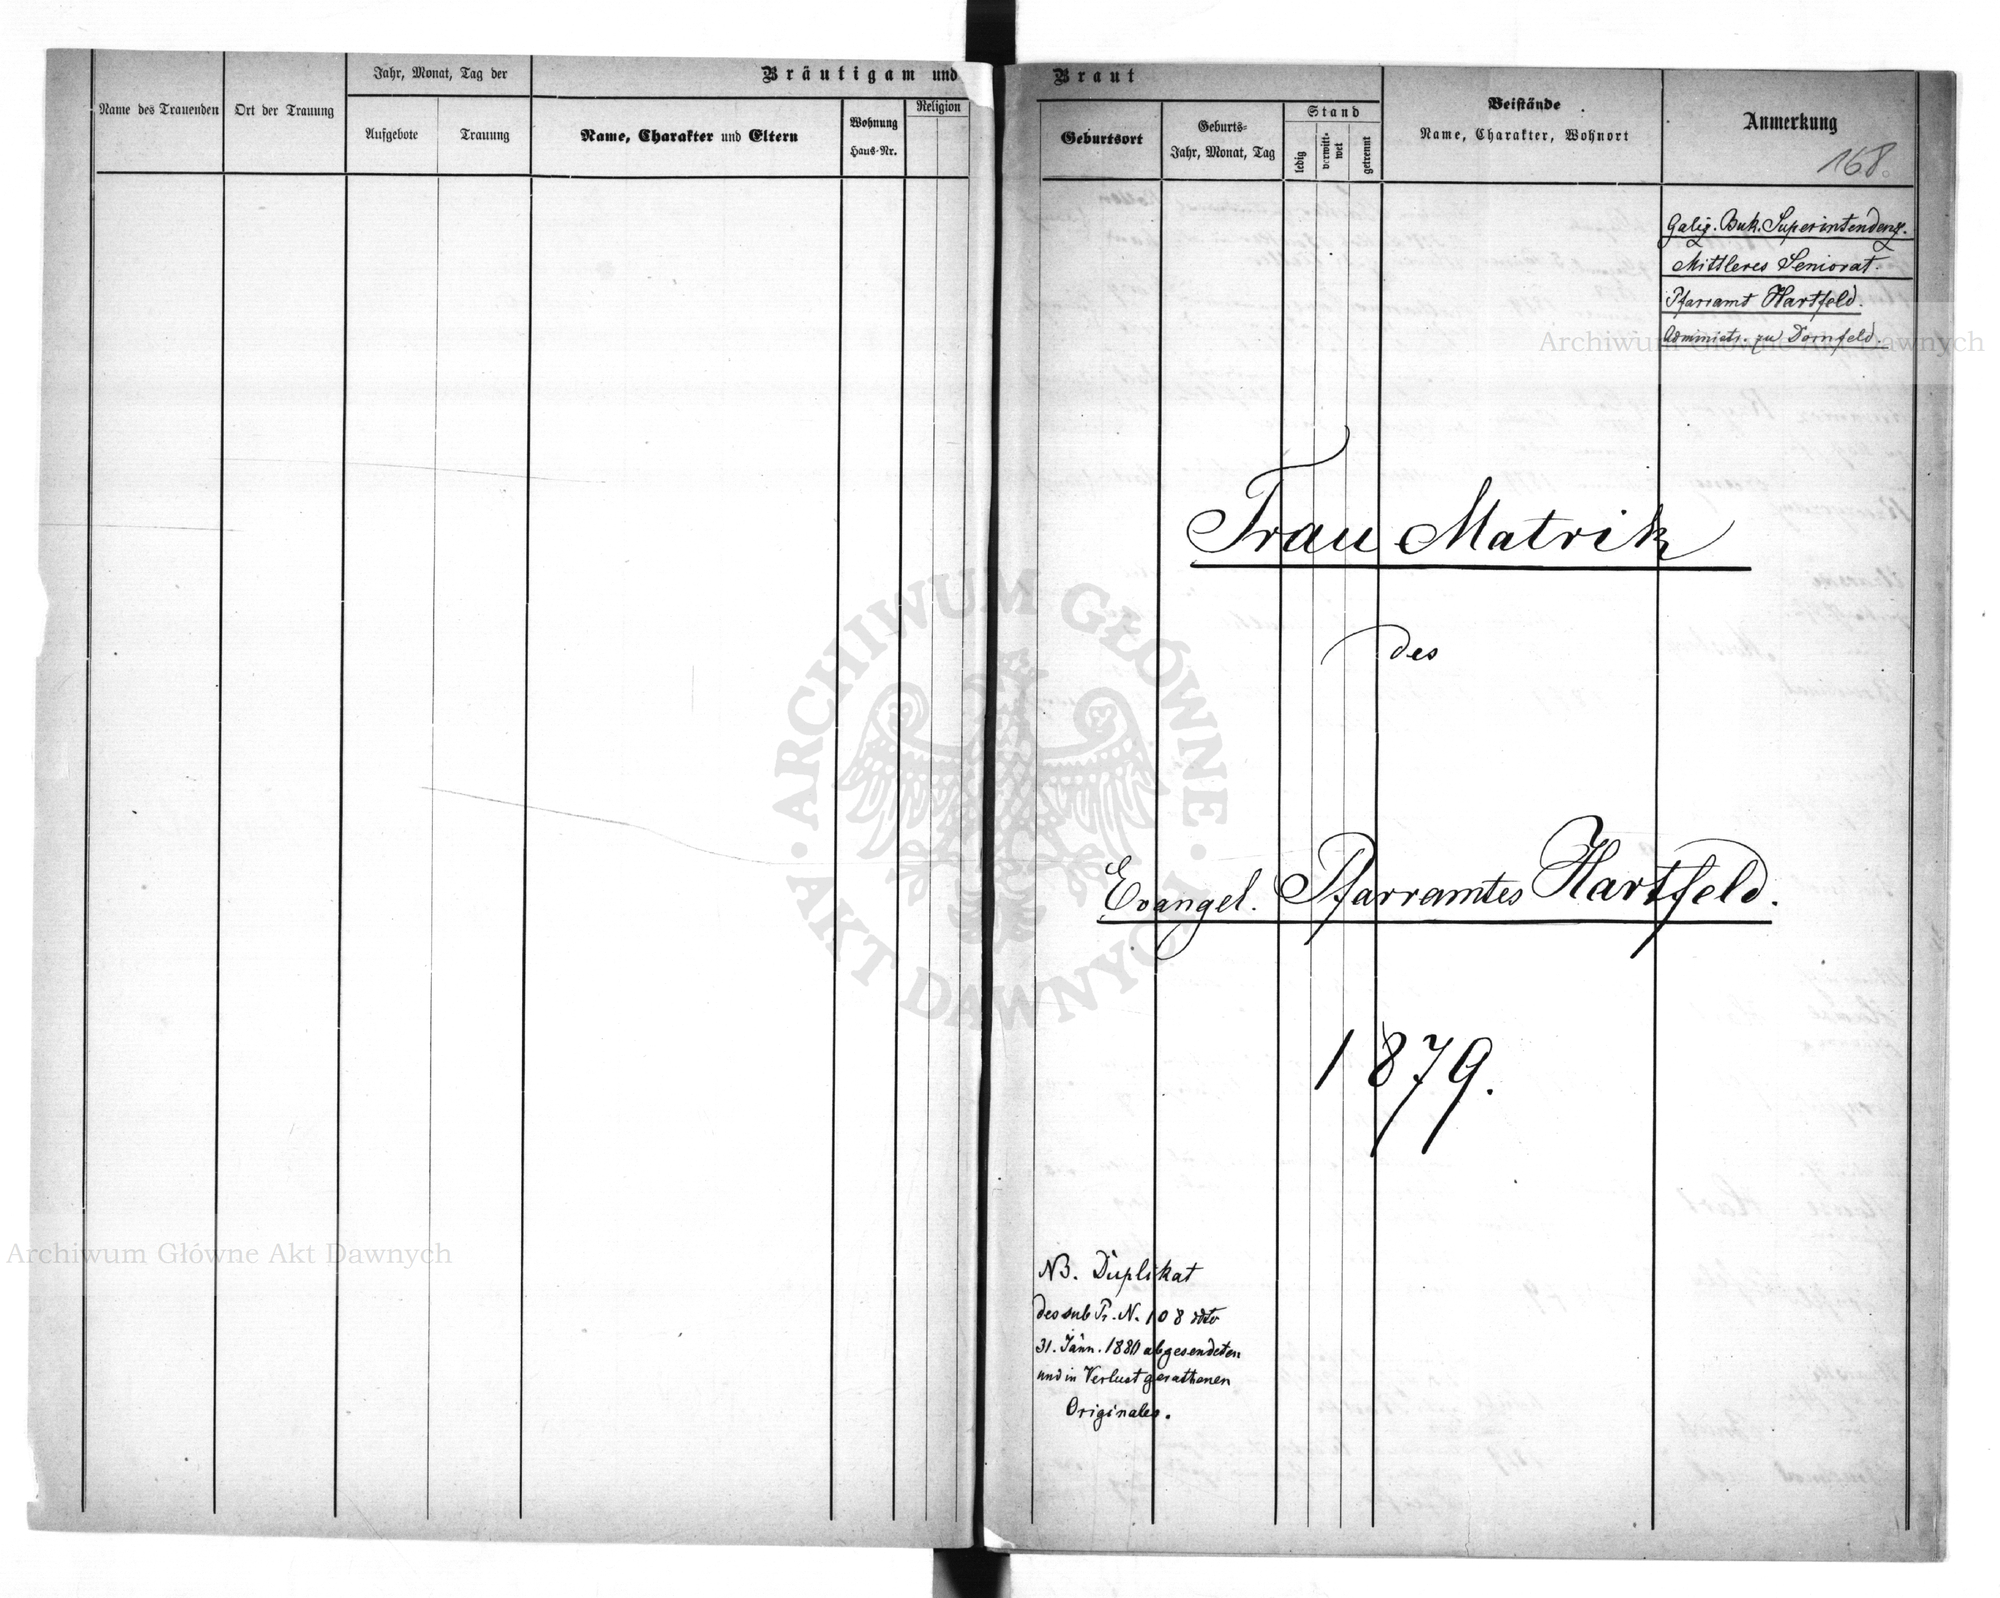 Bräutigam und Braut
Name des Trauenden
Ort der Trauung
Jahr, Monat, Tag der
Aufgebote
Trauung
Name, Charakter und Eltern
Wohnung
Haus-Nr.
Religion
Geburtsort
Geburts-
Jahr, Monat, Tag
Stand
ledig
verwitt-
wet
getrennt
Beistände
Name, Charakter, Wohnort
Anmerkung
168.
Galiz. Buk. Superintendenz.
Mittleres Seniorat.
Pfarramt Hartfeld.
Administr. zu Dornfeld.
Archiwum Główne Akt Dawnych
Trau Matrik
des
Evangel. Pfarramtes Hartfeld.
1879.
ARCHIWUM GŁÓWNE
AKT DAWNYCH
Archiwum Główne Akt Dawnych
NB. Duplikat
des sub Pr. N. 108 ddto
31. Jänn. 1880 abgesendeten
und in Verlust gerathenen
Originales.